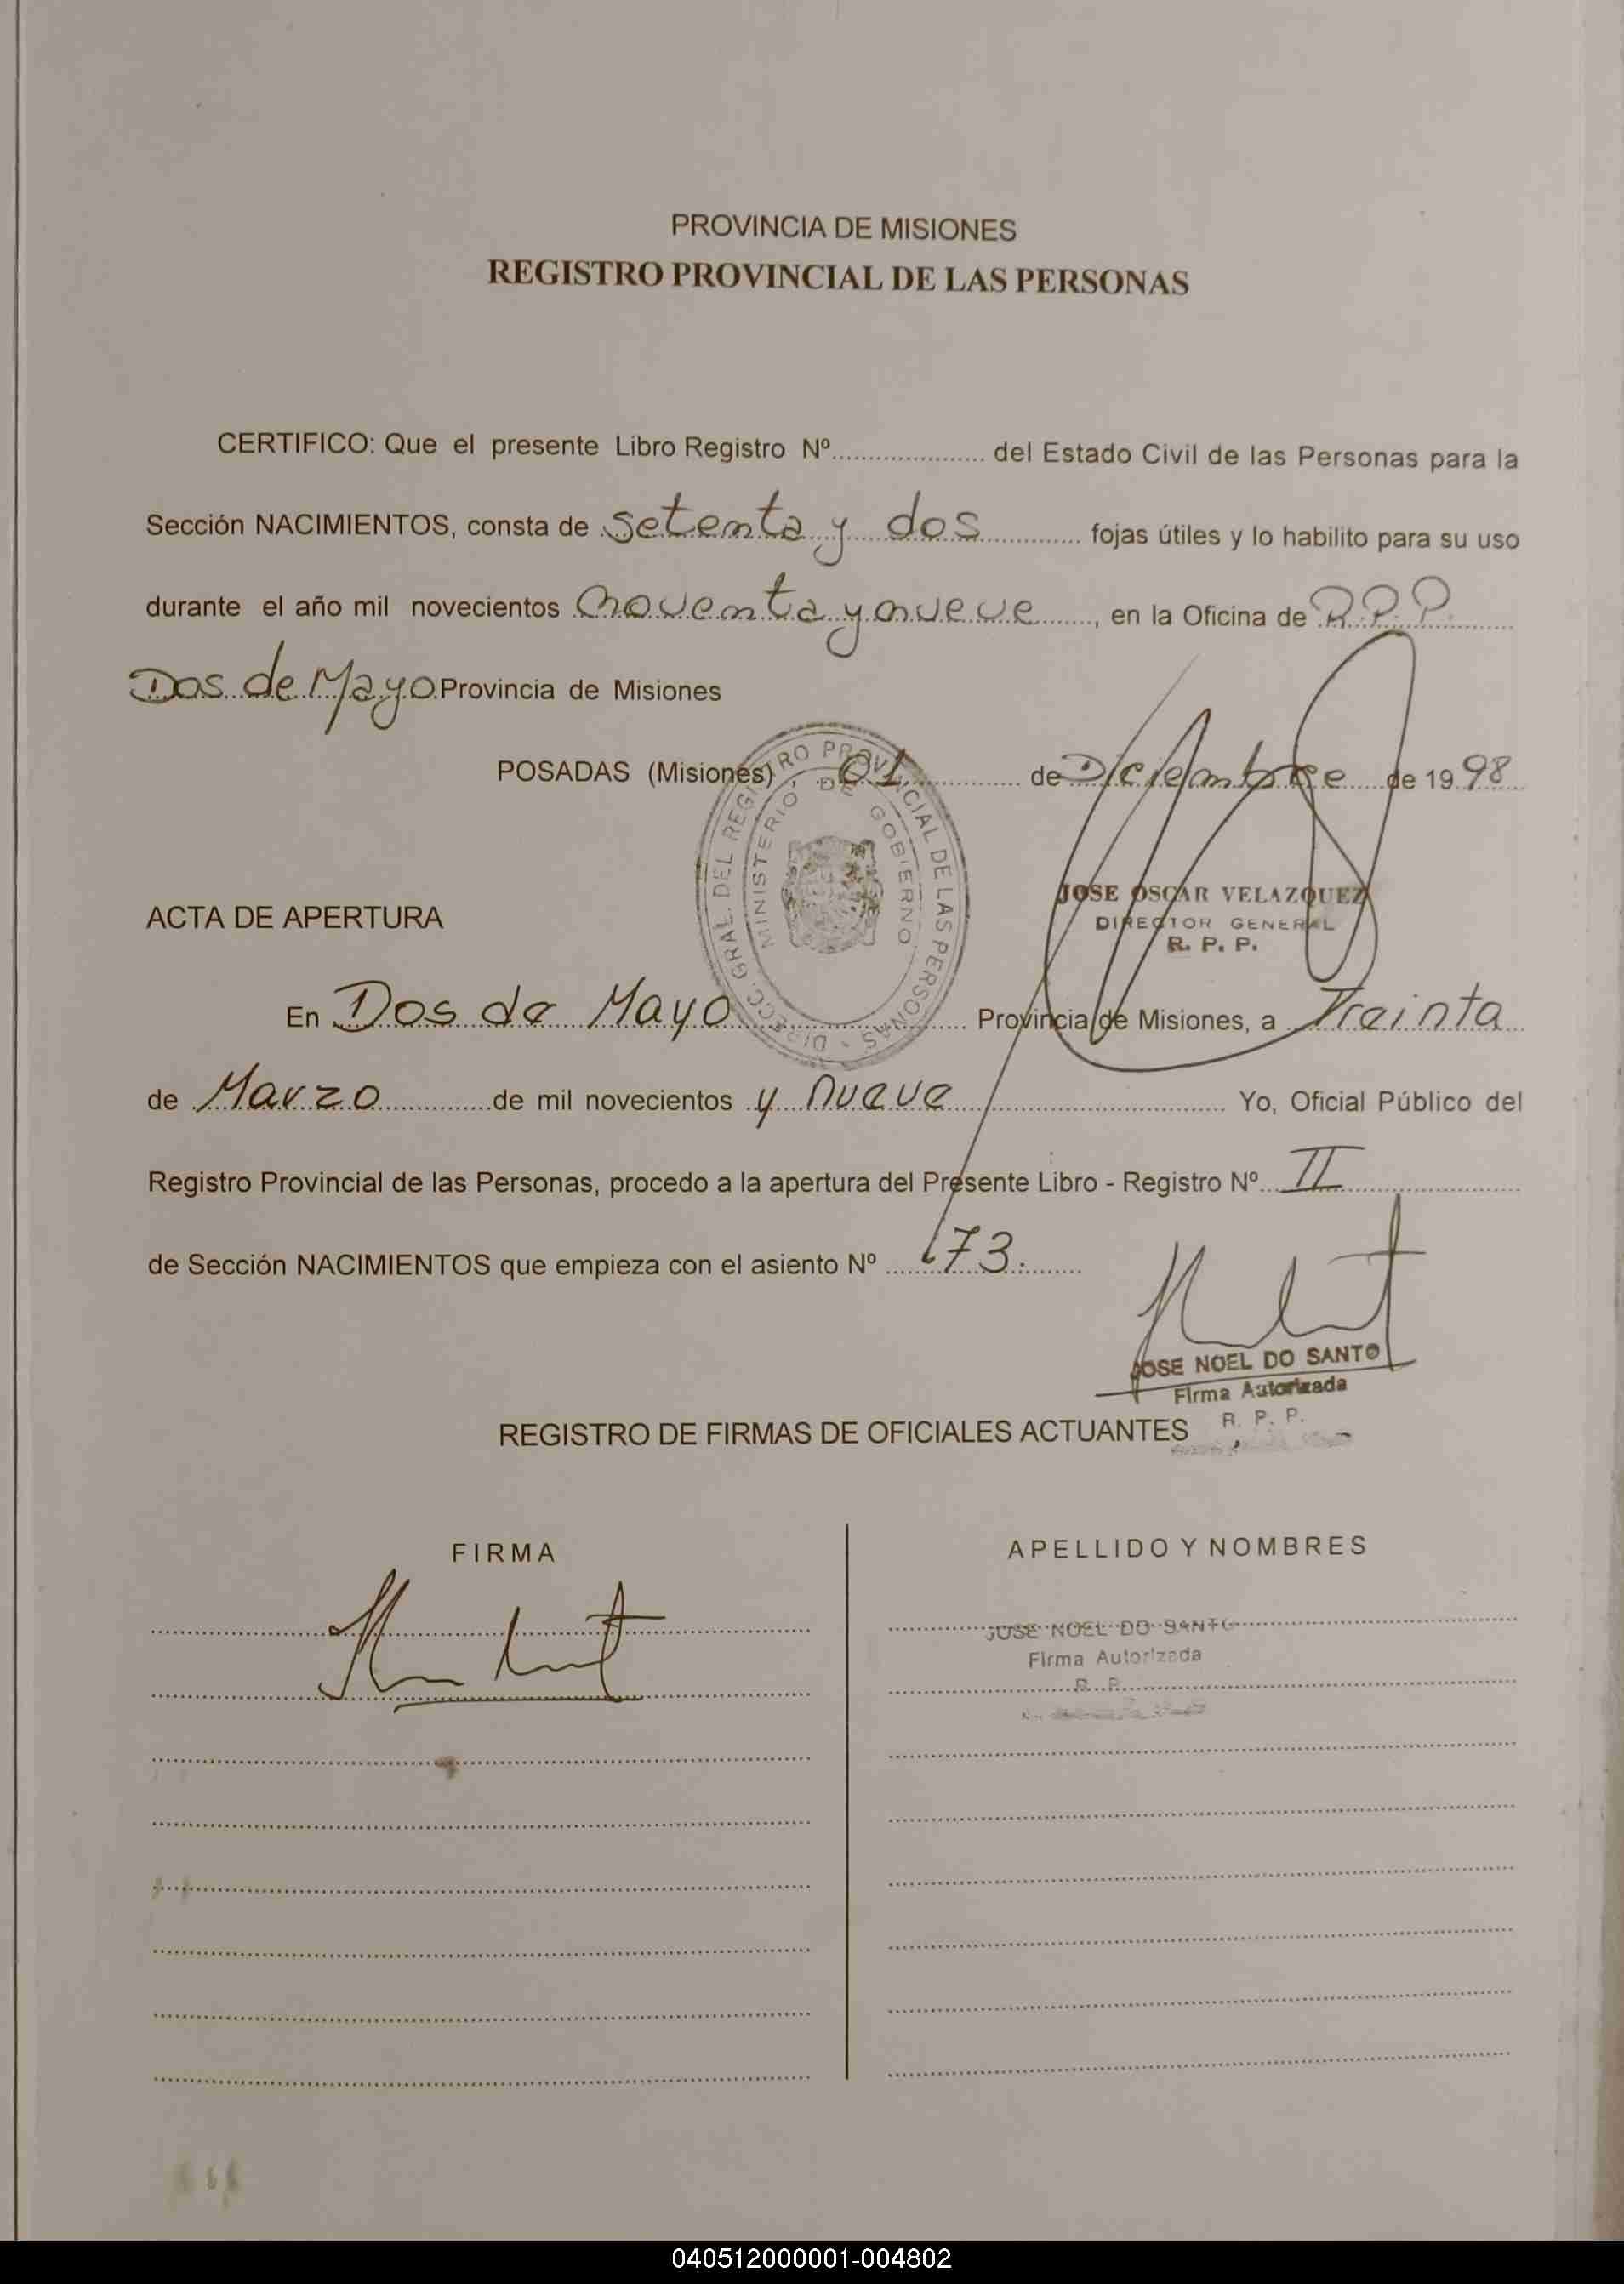 PROVINCIA DE MISIONES
REGISTRO PROVINCIAL DE LAS PERSONAS
CERTIFICO: Que el presente Libro Registro Nº.................... del Estado Civil de las Personas para la
Sección NACIMIENTOS, consta de setenta y dos fojas útiles y lo habilito para su uso
durante el año mil novecientos noventa y nueve, en la Oficina de R.P.P.
Dos de Mayo Provincia de Misiones
POSADAS (Misiones) 01 de Diciembre de 1998
DIRECC. GRAL. DEL REGISTRO PROVINCIAL DE LAS PERSONAS
MINISTERIO DE GOBIERNO
JOSE OSCAR VELAZQUEZ
DIRECTOR GENERAL
R. P. P.
ACTA DE APERTURA
En Dos de Mayo Provincia de Misiones, a Treinta
de Marzo de mil novecientos y nueve Yo, Oficial Público del
Registro Provincial de las Personas, procedo a la apertura del Presente Libro - Registro Nº II
de Sección NACIMIENTOS que empieza con el asiento Nº 173.
JOSE NOEL DO SANTO
Firma Autorizada
R. P. P.
REGISTRO DE FIRMAS DE OFICIALES ACTUANTES
FIRMA APELLIDO Y NOMBRES
JOSE NOEL DO SANTO
Firma Autorizada
R. P.
040512000001-004802